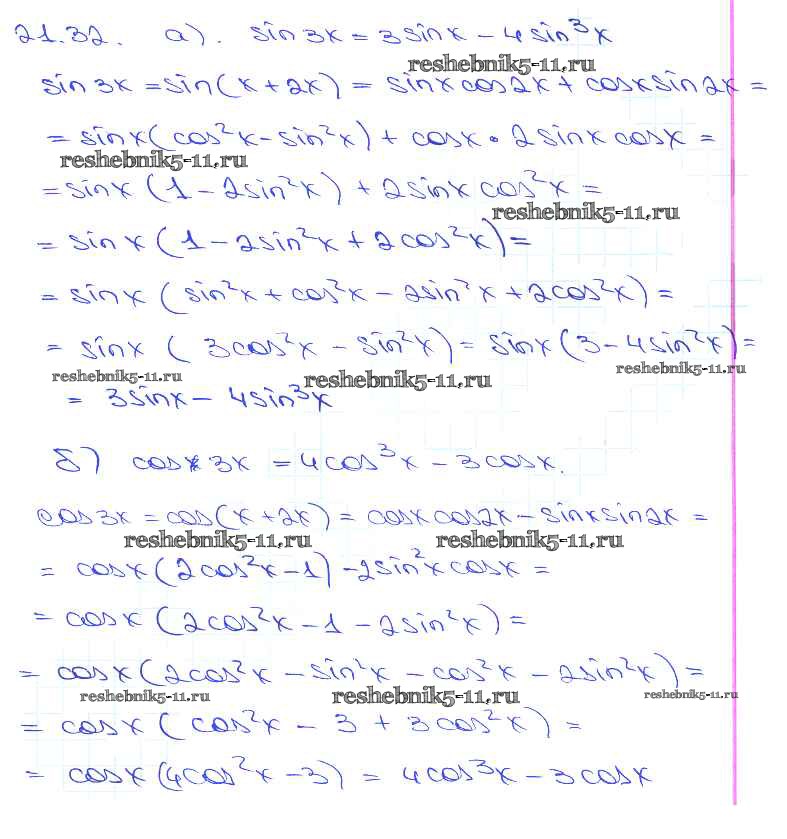 21.32. а). sin3x = 3sinx - 4sin³x
reshebnik5-11.ru
sin3x = sin(x+2x) = sinx cos2x + cosx sin2x =
= sinx(cos²x - sin²x) + cosx • 2sinx cosx =
reshebnik5-11.ru
= sinx (1 - 2sin²x) + 2sinx cos²x =
reshebnik5-11.ru
= sinx (1 - 2sin²x + 2cos²x) =
= sinx (sin²x + cos²x - 2sin²x + 2cos²x) =
= sinx ( 3cos²x - sin²x) = sinx (3 - 4sin²x) =
reshebnik5-11.ru reshebnik5-11.ru reshebnik5-11.ru
= 3sinx - 4sin³x
б) cos 3x = 4cos³x - 3cosx.
cos3x = cos(x+2x) = cosx cos2x - sinx sin2x =
reshebnik5-11.ru reshebnik5-11.ru
= cosx (2cos²x - 1) - 2sin²x cosx =
= cosx (2cos²x - 1 - 2sin²x) =
= cosx (2cos²x - sin²x - cos²x - 2sin²x) =
reshebnik5-11.ru reshebnik5-11.ru reshebnik5-11.ru
= cosx ( cos²x - 3 + 3cos²x ) =
= cosx (4cos²x - 3) = 4cos³x - 3cosx